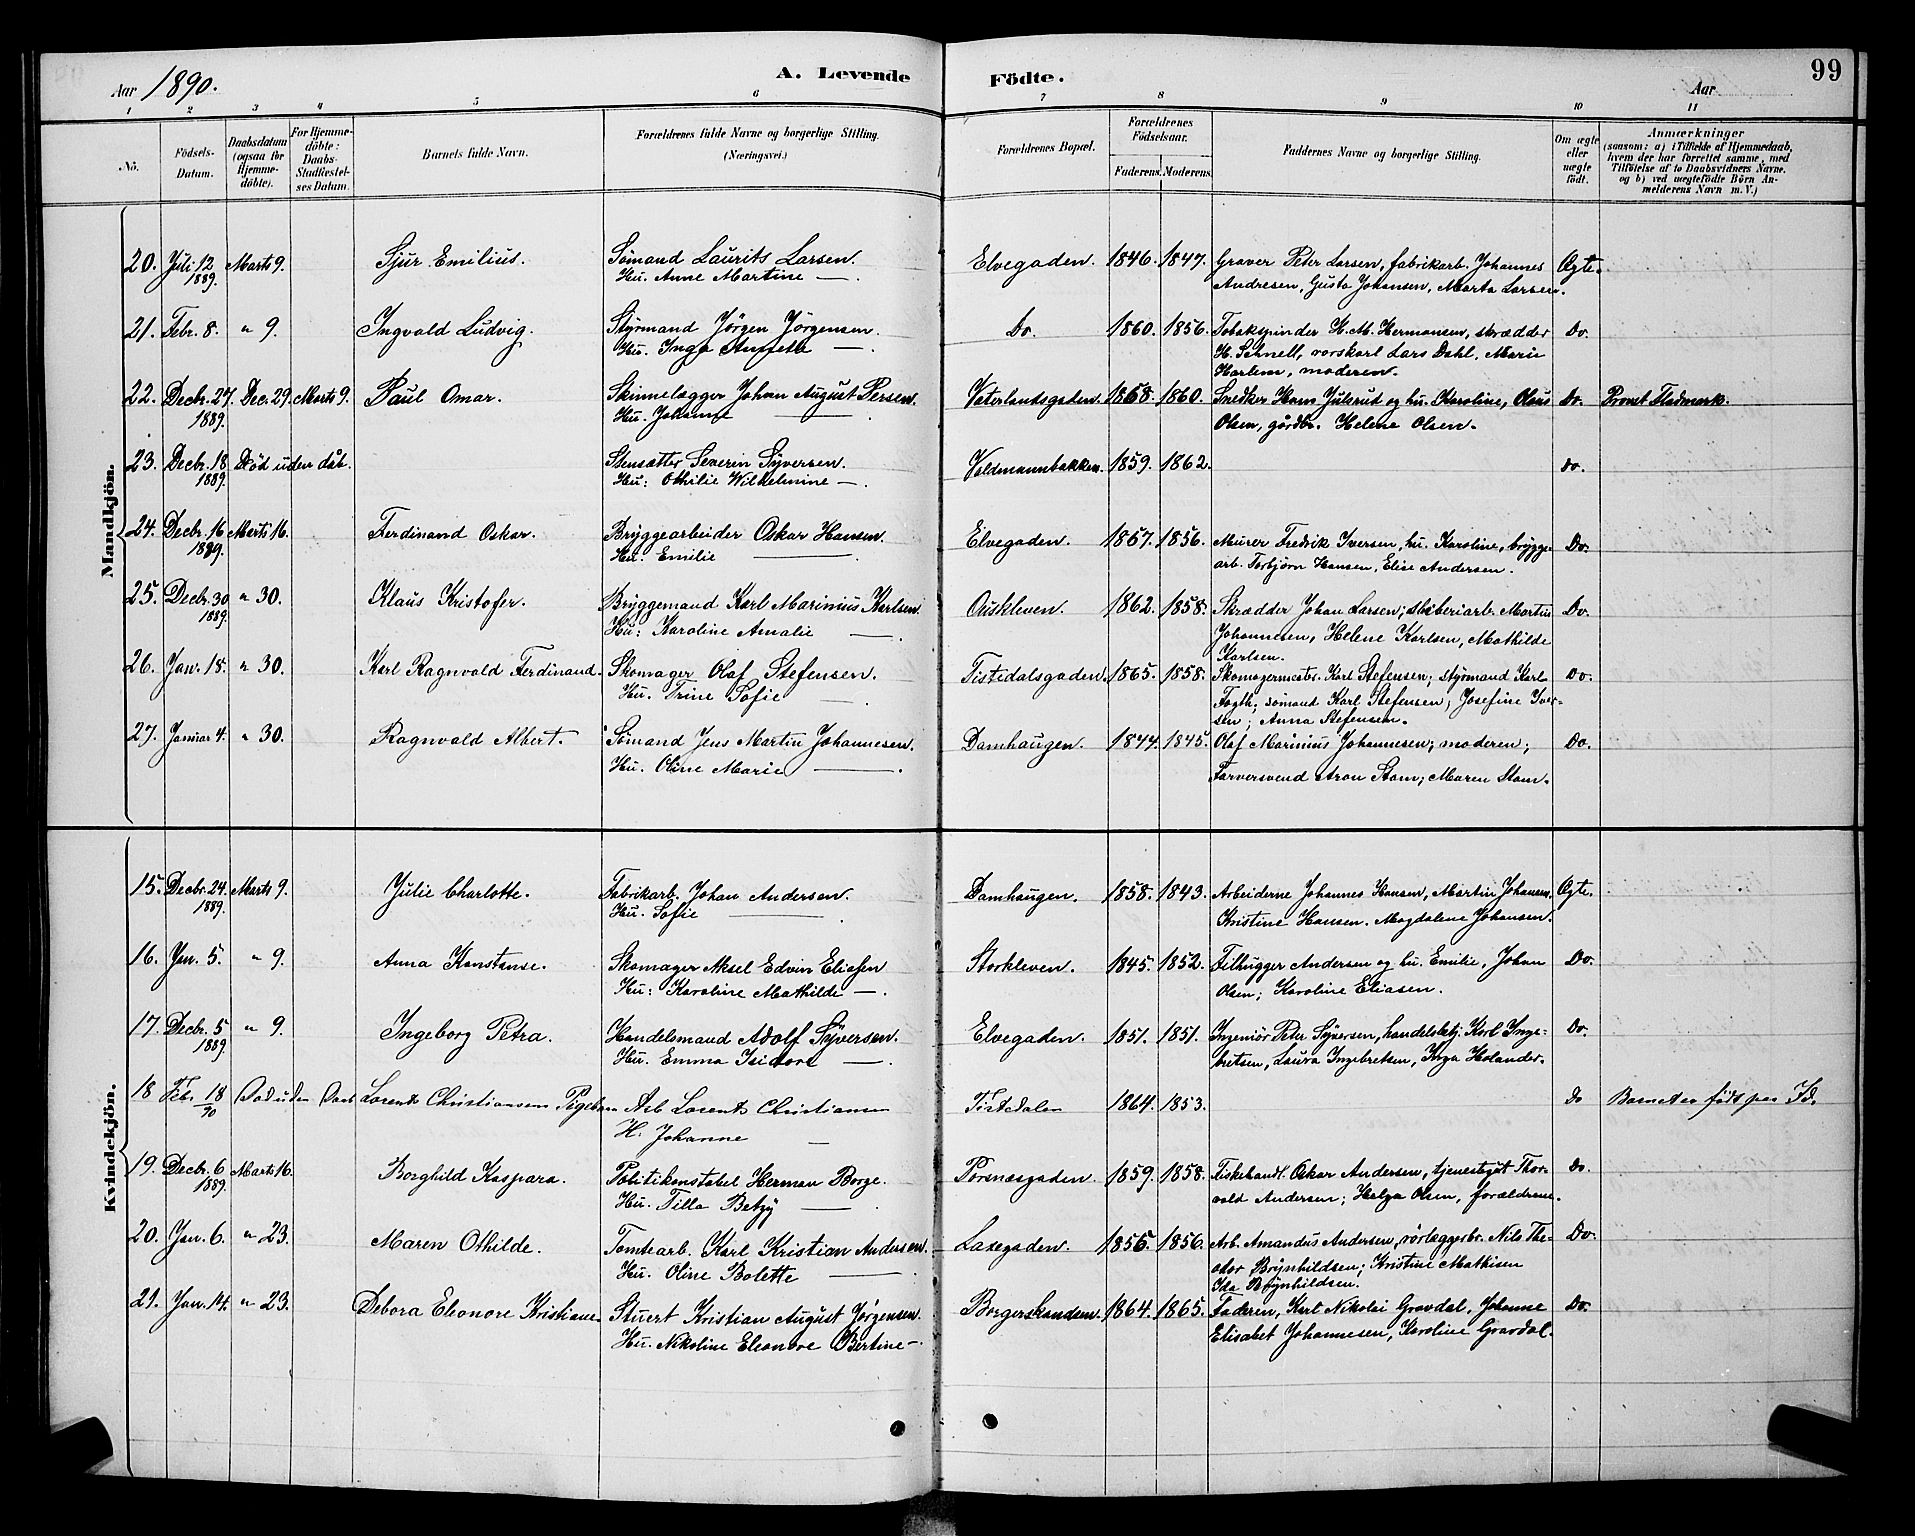 Aar 1890.
A. Levende Födte.
Aar
99
1 2 3 4 5 6 7 8 9 10 11
No.
Födsels-Datum.
Daabsdatum (ogsaa for Hjemmedöbte).
For Hjemmedöbte: Daabs-Stadfæstelses Datum.
Barnets fulde Navn.
Forældrenes fulde Navne og borgerlige Stilling. (Næringsvei.)
Forældrenes Bopæl.
Forældrenes Födselsaar.
Faderens. Moderens.
Faddernes Navne og borgerlige Stilling.
Om ægte eller uægte födt.
Anmærkninger (saasom: a) i Tilfælde af Hjemmedaab, hvem der har forrettet samme, med Tilföielse af to Daabsvidners Navne. og b) ved uægtefödte Börn Anmelderens Navn m. V.)
Mandkjön.
20. Juli 12 Marts 9. Sjur Emilius. Sömand Laurits Larsen. Elvegaden. 1846. 1847. Graver Peter Larsen, fabrikarb. Johannes Ægte.
1889. Hu. Anne Martine — Andresen, Gusta Johansen, Marta Larsen.
21. Febr. 8. " 9. Ingvald Ludvig. Styrmand Jörgen Jörgensen. Do. 1860. 1856. Tobakspinder H. M. Hermansen, skrædder Do.
Hu. Inga Annette — H. Schnell, vorskarl Lars Dahl, Marie
Harlem, moderen.
22. Decbr. 27. Dec. 29. Marts 9. Paul Omar. Skinnelægger Johan August Persen. Veterlandsgaden. 1868. 1860. Snedker Hans Julsrud og hu. Karoline, Olaus Do. Provst Fladmark.
1889. Hu. Johanne — Olsen, gårdbr. Helene Olsen.
23. Decbr. 18 Död uden dåb. Stensætter Severin Syversen. Voldmannbakken. 1859. 1862. do.
1889. Hu: Othilie Wilhelmine —.
24. Decbr. 16 Marts 16. Ferdinand Oskar. Bryggearbeider Oskar Hansen. Elvegaden. 1867. 1856. Murer Fredrik Iversen, hu. Karoline, brygge- Do.
1889. Hu. Emilie — arb. Torbjörn Hansen, Elise Andersen.
25. Decbr. 30 " 30. Klaus Kristofer. Bryggemand Karl Marinius Karlsen. Ouskleven. 1862. 1858. Skrædder Johan Larsen; sliberiarb. Martin Do.
1889. Hu: Karoline Amalie — Johannesen, Helene Karlsen, Mathilde
Karlsen.
26. Jan. 18. " 30. Karl Ragnvald Ferdinand. Skomager Olaf Stefensen. Tistedalsgaden. 1865. 1858. Skomagermestr. Karl Stefensen; styrmand Karl Do.
Hu. Trine Sofie — Fogth; sömand Karl Stefensen; Josefine Iver-
sen; Anna Stefensen.
27. Januar 4. " 30. Ragnvald Albert. Sömand Jens Martin Johannesen. Damhaugen. 1844. 1845. Olaf Marinius Johannesen; moderen; Do.
Hu. Oline Marie — Farversvend Aron Stam; Maren Stam.
Kvindekjön.
15. Decbr. 24. Marts 9. Julie Charlotte. Fabrikarb. Johan Andersen. Damhaugen. 1858. 1843. Arbeiderne Johannes Hansen, Martin Johansen. Ægte.
1889. Hu. Sofie — Kristine Hansen. Magdalene Johansen.
16. Jan. 5. " 9. Anna Konstanse. Skomager Aksel Edvin Eliasen Storkleven. 1845. 1852. Filhugger Andersen og hu. Emilie, Johan Do.
Hu: Karoline Mathilde —. Olsen; Karoline Eliasen.
17. Decbr. 5 " 9. Ingeborg Petra. Handelsmand Adolf Syversen. Elvegaden. 1851. 1851. Ingeniör Peter Syversen, handelsbetj. Karl Inge- Do.
1889. Hu. Emma Isidora — bretsen, Laura Ingebretsen, Inga Holander.
18 Febr. 18 Död uden Daab Lorents Christiansens Pigebarn Arb Lorents Christiansen Tistedalen 1864. 1853. Do Barnet er födt paa Id.
90 H. Johanne —
19. Decbr. 6 Marts 16. Borghild Kaspara. Politikonstabel Herman Borge. Porsnæsgaden. 1859. 1858. Fiskehandl. Oskar Andersen, tjenestgut Thor- Do.
1889. Hu. Tilla Betzy — vald Andersen; Helga Olsen, forældrene.
20. Jan. 6. " 23. Maren Othilde. Tomtearb. Karl Kristian Andersen. Laxegaden. 1855. 1856. Arb. Amandus Andersen, rörlæggerbr. Nils The- Do.
Hu. Oline Bolette — odor Brynhildsen; Kristine Mathisen
Ida Brynhildsen.
21. Jan. 14. " 23. Debora Eleonore Kristiane. Stuert Kristian August Jörgensen. Borgerskandsen. 1864. 1865. Faderen, Karl Nikolai Gravdal, Johanne Do.
Hu. Nikoline Eleonore Bertine — Elisabet Johannesen, Karoline Gravdal.